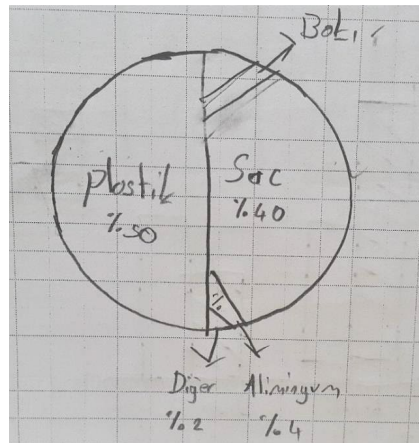 Plastik
%50
Sac
%40
%
Diğer
%2
Alimingum
%4